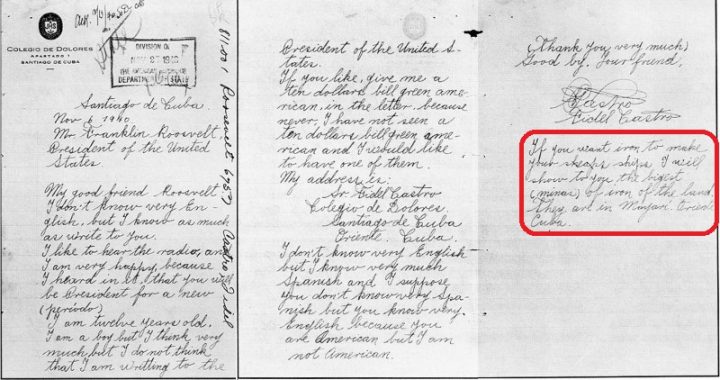 COLEGIO DE DOLORES
APARTADO 1
SANTIAGO DE CUBA
DIVISION OF
THE AMERICAN REPUBLICS
DEPARTMENT OF STATE
Santiago de Cuba
Nov 6 1940
Mr Franklin Roosvelt,
President of the United
States.
My good friend Roosvelt
I don't know very En-
glish, but I know as much
as write to you.
I like to hear the radio, and
I am very happy, because
I heard in it, that you will
be President for a new
(periodo)
I am twelve years old.
I am a boy but I think very
much but I do not think
that I am writting to the
Roosvelt
Castro Fidel
President of the United S-
tates.
If you like, give me a
ten dollars bill green ame-
rican, in the letter, because
never, I have not seen a
ten dollars bill green ame-
rican and I would like
to have one of them.
My address is:
Sr Fidel Castro
Colegio de Dolores.
Santiago de Cuba
Oriente. Cuba.
I don't know very English
but I know very much
Spanish and I suppose
you don't know very Spa-
nish but you know very
English because you
are American but I am
not American.
(Thank you very much)
Good by. Your friend,
Castro
Fidel Castro
If you want iron to make
your sheaps ships I will
show to you the bigest
(minas) of iron of the land.
They are in Mayari. Oriente
Cuba.